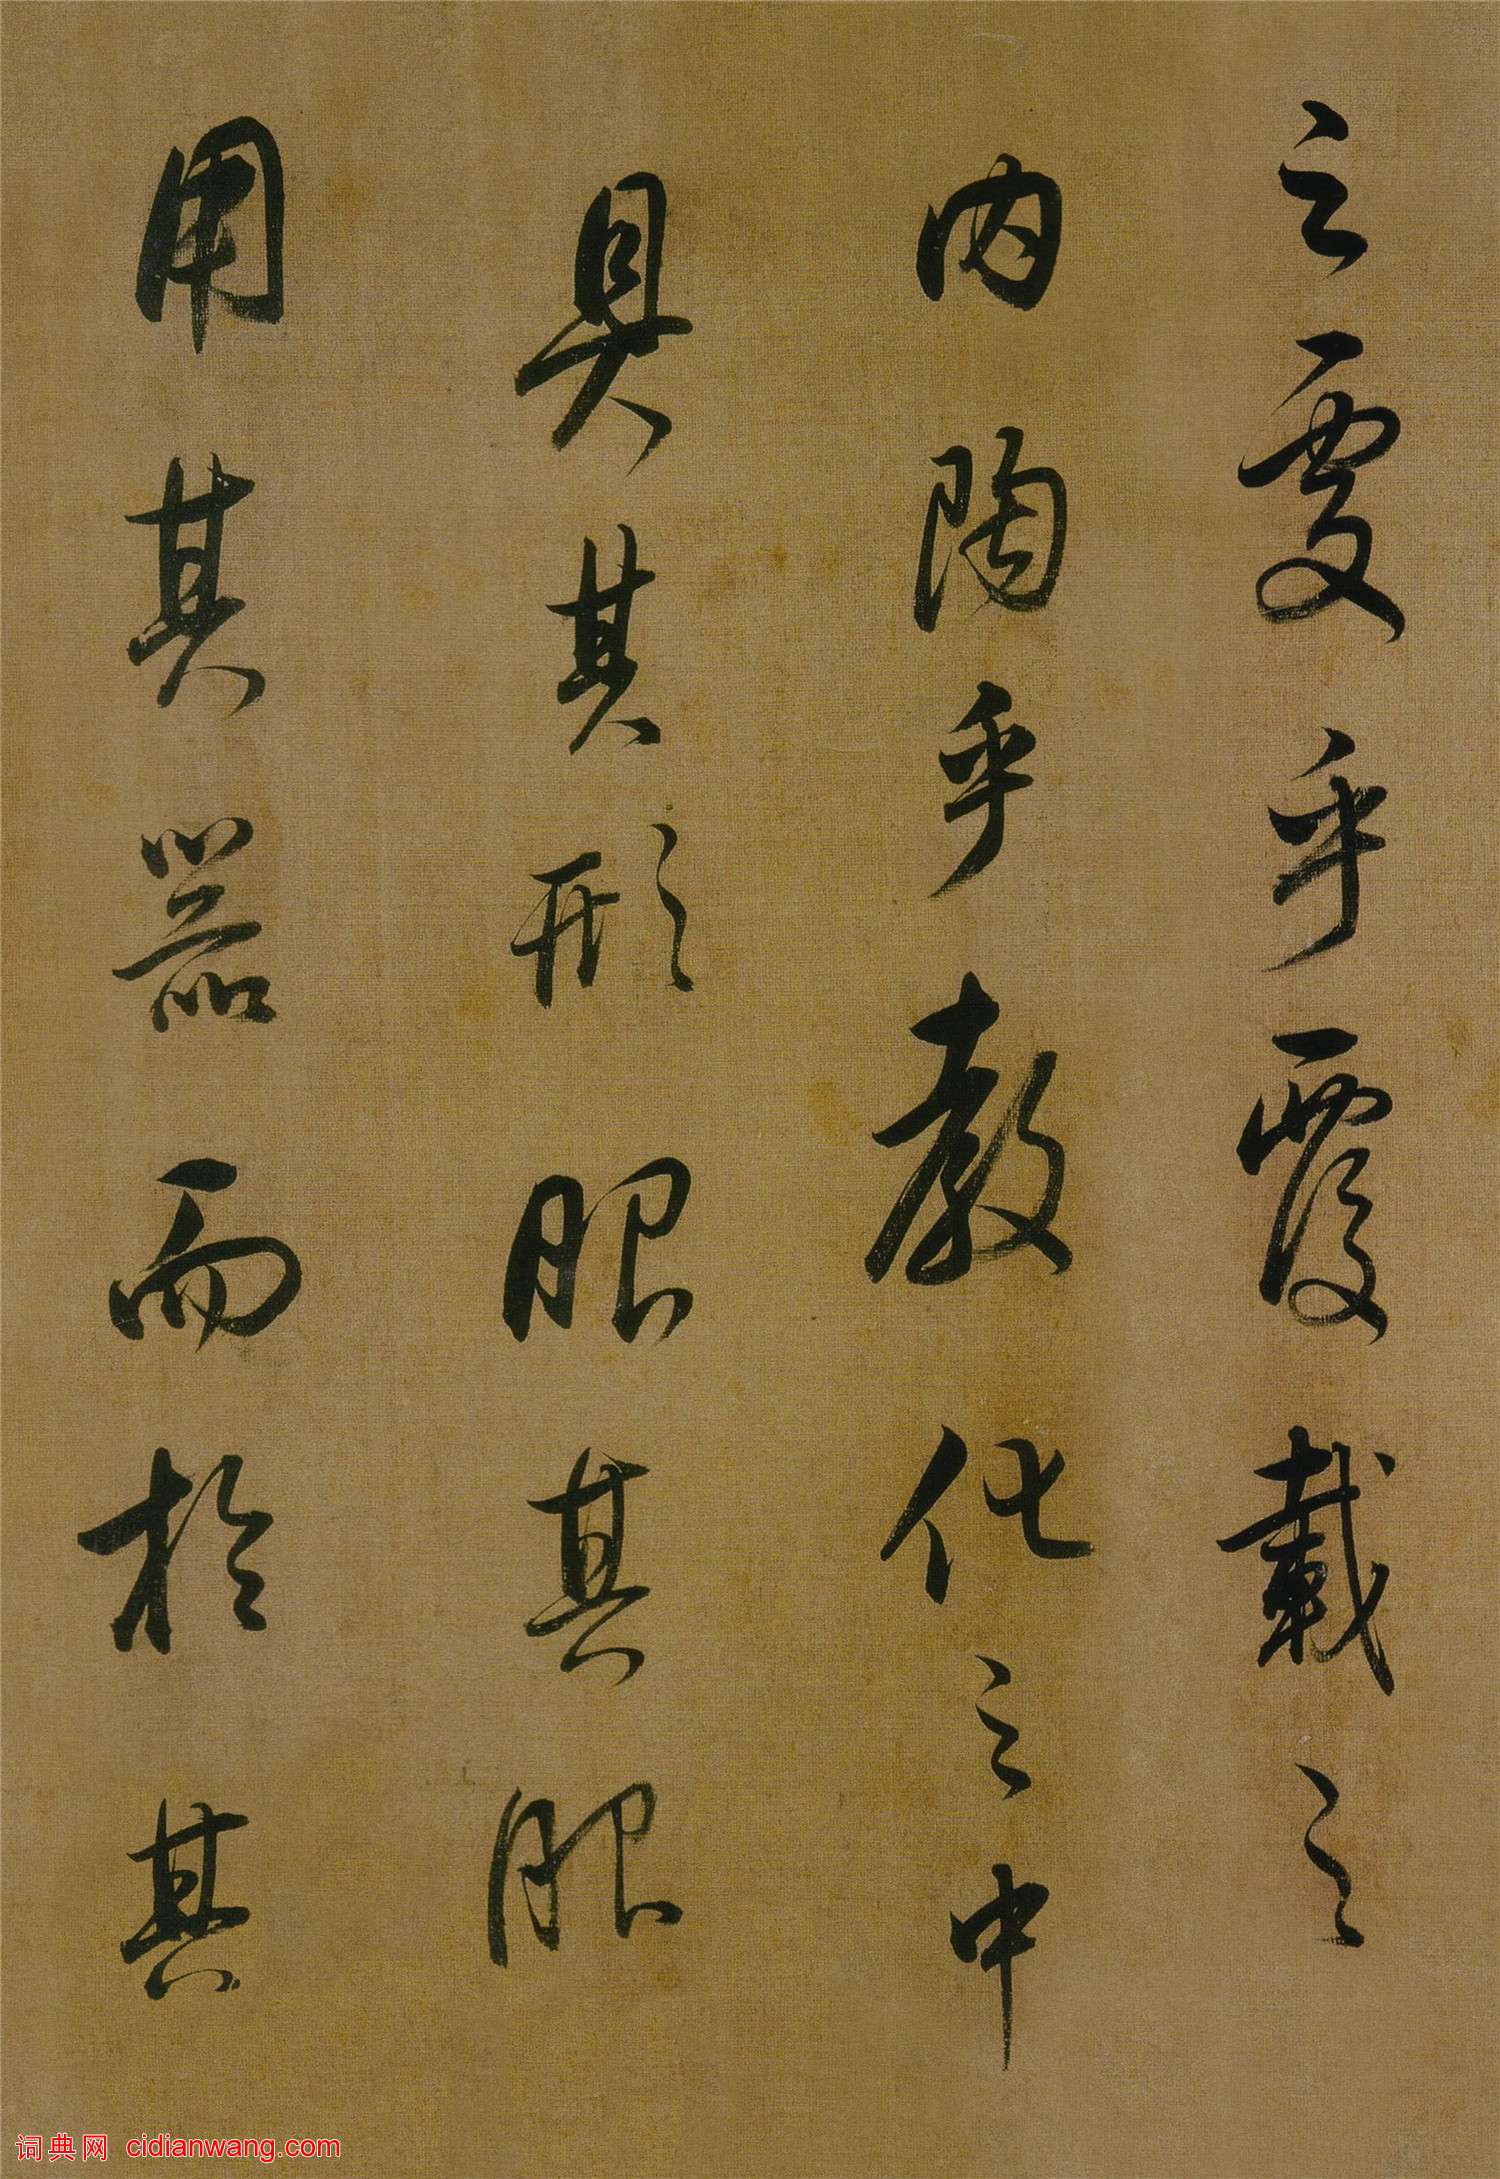 之處乎覆載之
内陶乎教化之中
具其形服其服
用其器而於其
词典网 cidianwang.com